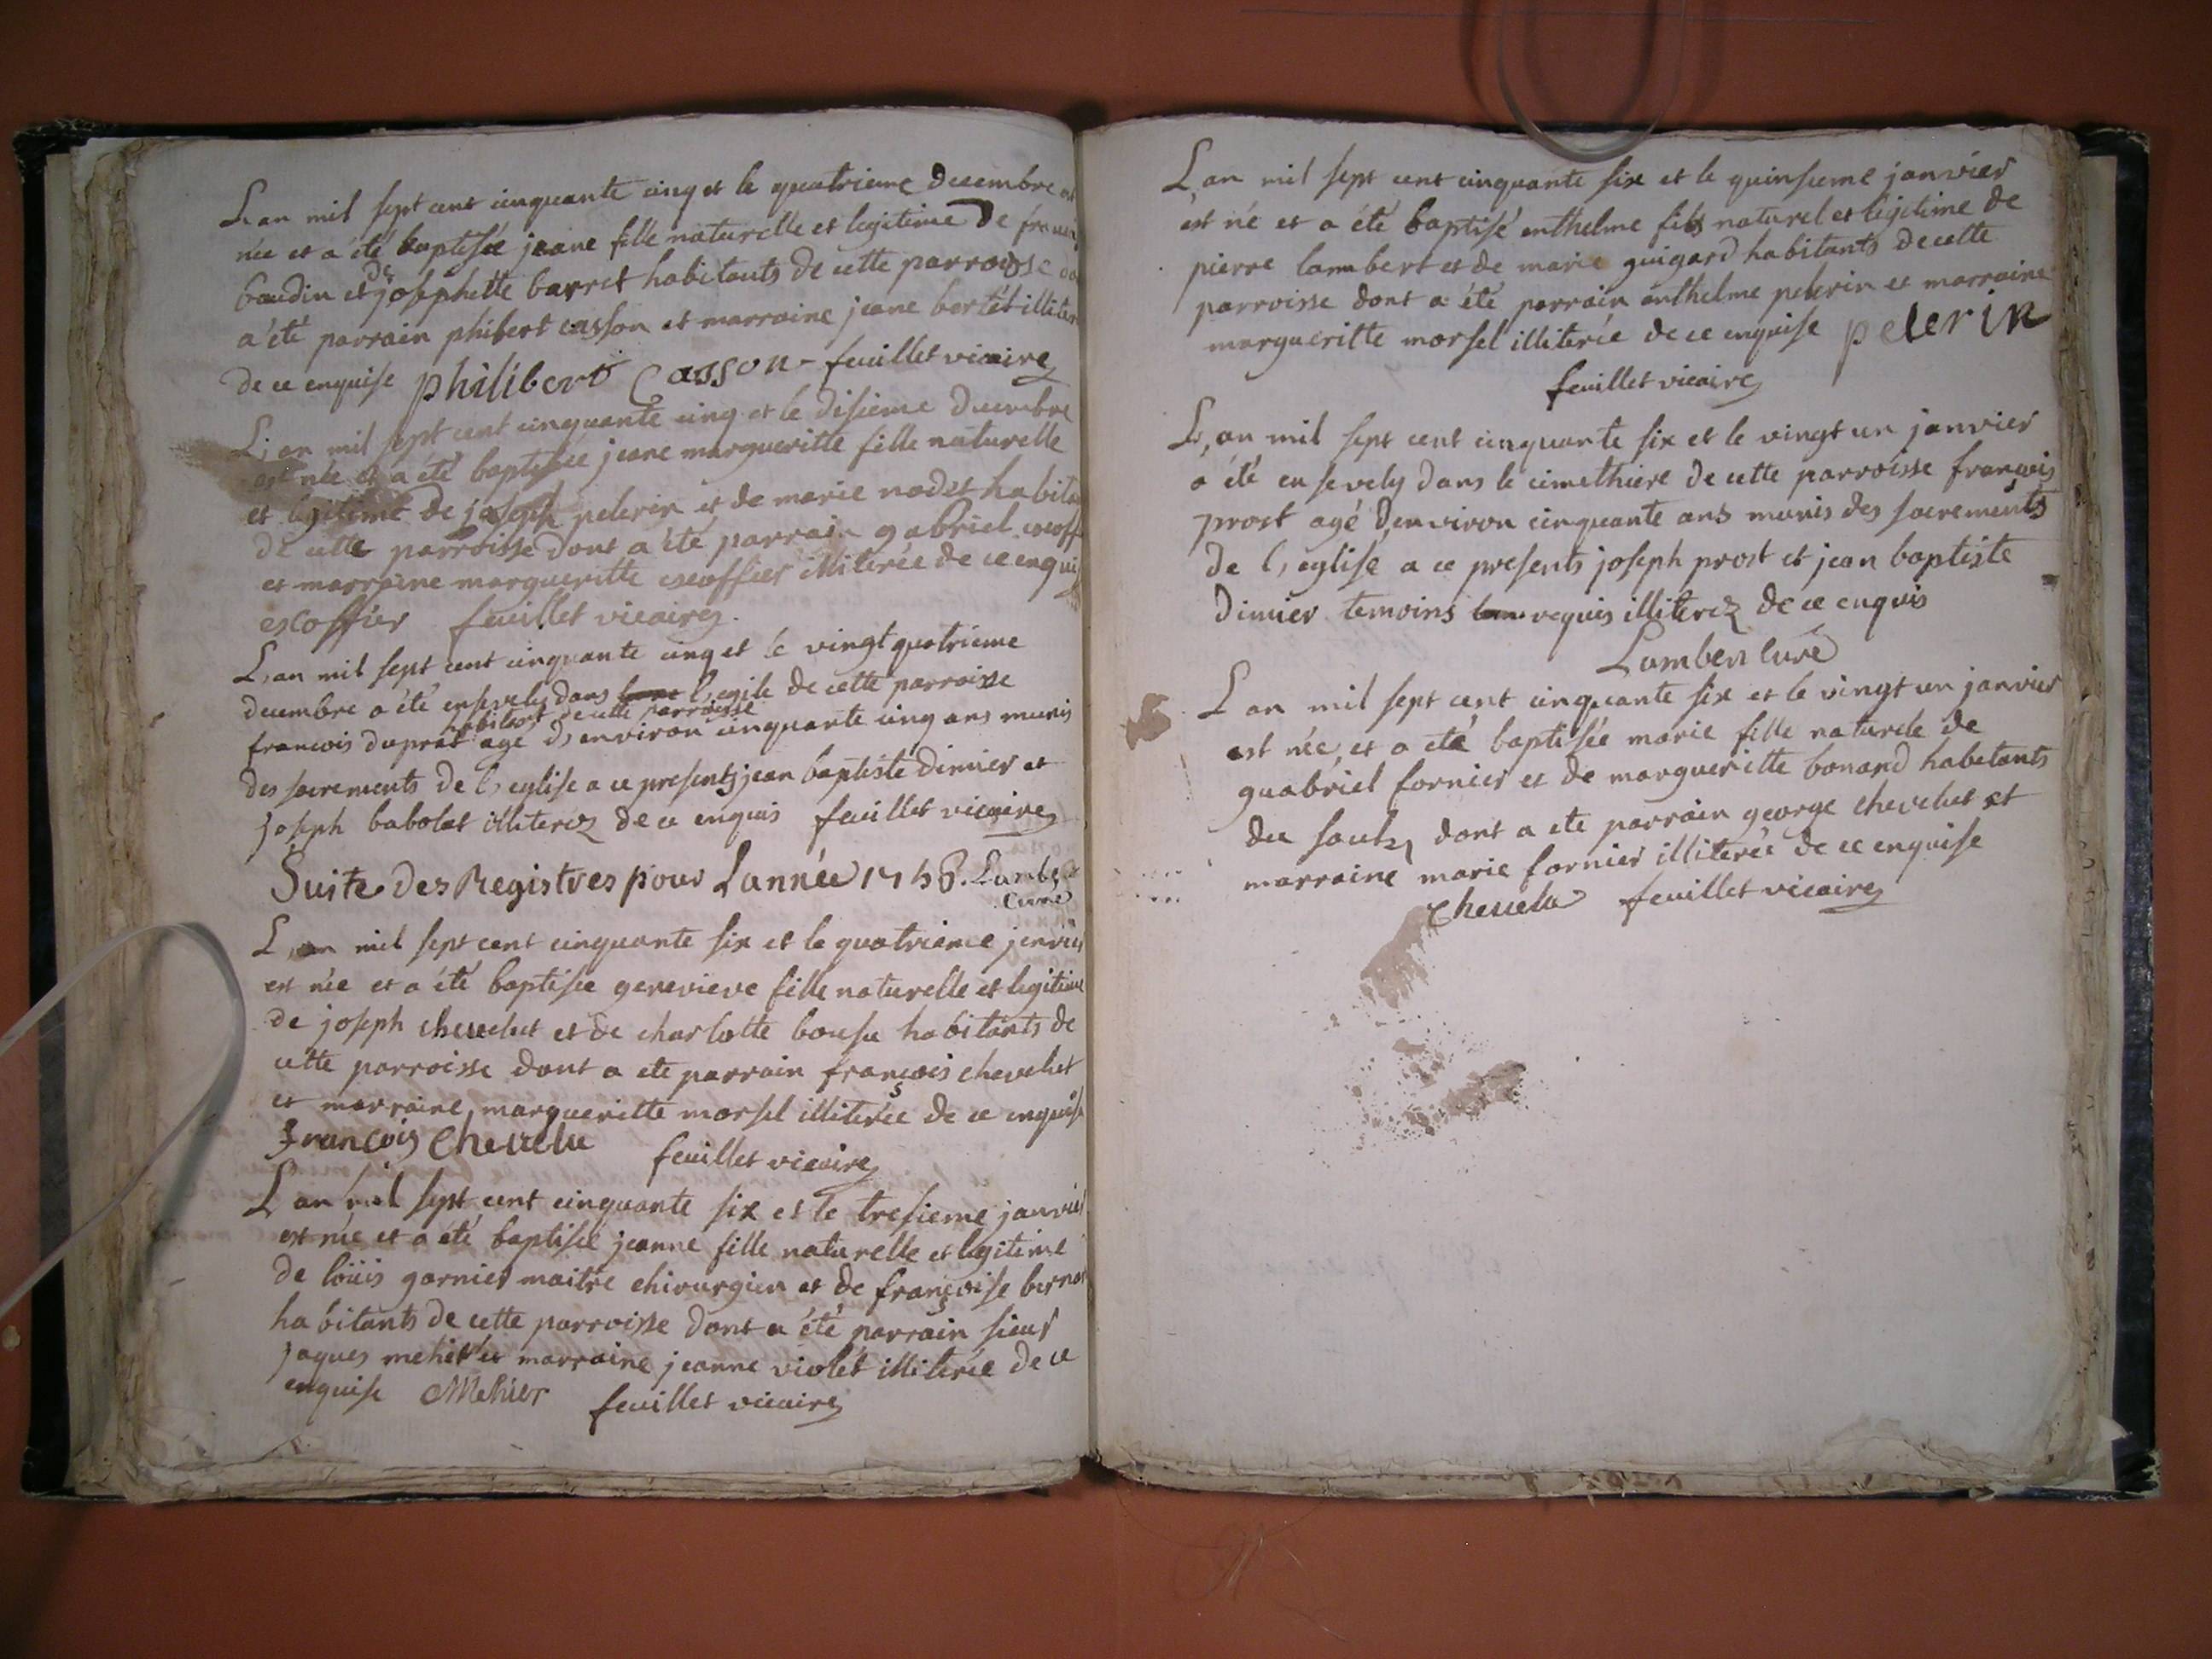 L,an mil sept cent cinquante cinq et le quatrieme decembre est
née et a été baptisée jeane fille naturelle et legitime De
baudin et de josephette barret habitants de cette parroisse
a été parrain phibert casson et marraine jeane bertet
de ce enquise philibert Casson feuillet vicaire
L,an mil sept cent cinquante cinq et le disieme decembre
est née et a été baptisée jeane margueritte fille naturelle
et legitime de joseph pelerin et de marie nodet
de cette parroisse dont a été parrain gabriel
et marraine margueritte escoffier illiterée de ce
escoffier feuillet vicaire
L,an mil sept cent cinquante cinq et le vingt quatrieme
decembre a été ensevely dans l,eglie de cette parroisse
habitant de cette parroisse
francois duprat agé d,environ cinquante cinq ans munis
des sacrements de l,eglise a ce presents jean baptiste dimier et
joseph babolat illiterez de ce enquis feuillet vicaire
Suite des Registres pour Lannée 1756. Lambert
Curé
L,an mil sept cent cinquante six et le quatrieme janvier
est née et a été baptisée genevieve fille naturelle et legitime
de joseph chevelut et de charlotte bousu habitants de
cette parroisse dont a ete parrain françois chevelut
et marraine margueritte morsel illiterée de ce enquise
françois Chevelu feuillet vicaire
L an mil sept cent cinquante six et le tresieme janvier
est née et a été baptisée jeanne fille naturelle et legitime
de loüis garnier maitre chirurgien et de françoise
habitants de cette parroisse dont a été parrain sieur
jaques mehier et marraine jeanne violet illiterée de ce
enquise Mehier feuillet vicaire
L an mil sept cent cinquante six et le quinsieme janvier
est né et a été baptisé anthelme fils naturel et legitime de
pierre lambert et de marie guigard habitants de cette
parroisse dont a été parrain anthelme pelerin et marraine
margueritte morsel illiterée de ce enquise pelerin
feuillet vicaire
L,an mil sept cent cinquante six et le vingt un janvier
a été ensevely dans le cimethiere de cette parroisse françois
prost agé d,environ cinquante ans munis des sacrements
de l,eglise a ce presents joseph prost et jean baptiste
dimier temoins requis illiterez de ce enquis
Lambert curé
L an mil sept cent cinquante six et le vingt un janvier
est née, et a eté baptisée marie fille naturele de
guabriel fornier et de margueritte bonard habetants
du sault, dont a ete parrain george chevelut et
marraine marie fornier illiterée de ce enquise
Chevelu feuillet vicaire